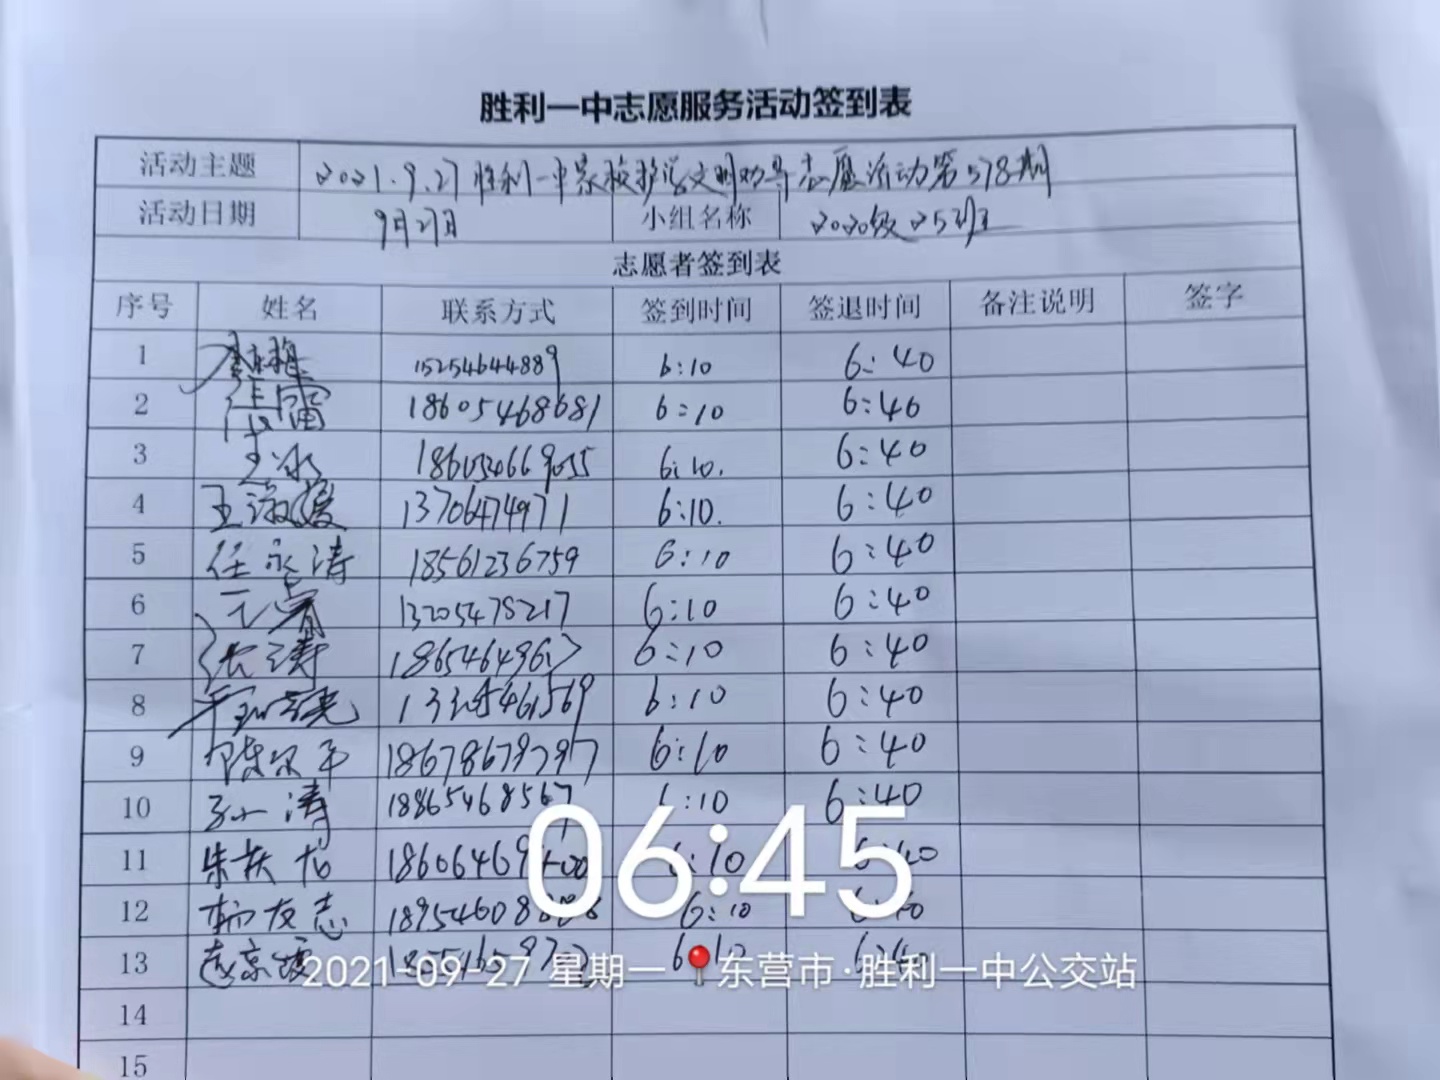 胜利一中志愿服务活动签到表
活动主题 2021.9.27胜利一中家校护学文明劝导志愿活动第578期
活动日期 9月27日 小组名称 2020级25班
志愿者签到表
序号 姓名 联系方式 签到时间 签退时间 备注说明 签字
1 15254644889 6:10 6:40
2 18605468681 6:10 6:40
3 6:10. 6:40
4 王淑媛 13706474971 6:10. 6:40
5 任永涛 18561236759 6:10 6:40
6 13205478217 6:10 6:40
7 张涛 6:10 6:40
8 6:10 6:40
9 18678679797 6:10 6:40
10 孙小涛 18865468567 6:10 6:40
11 6:10 6:40
12 柳友志 6:10 6:40
13 6:10 6:40
14
15
06:45
2021-09-27 星期一 东营市·胜利一中公交站